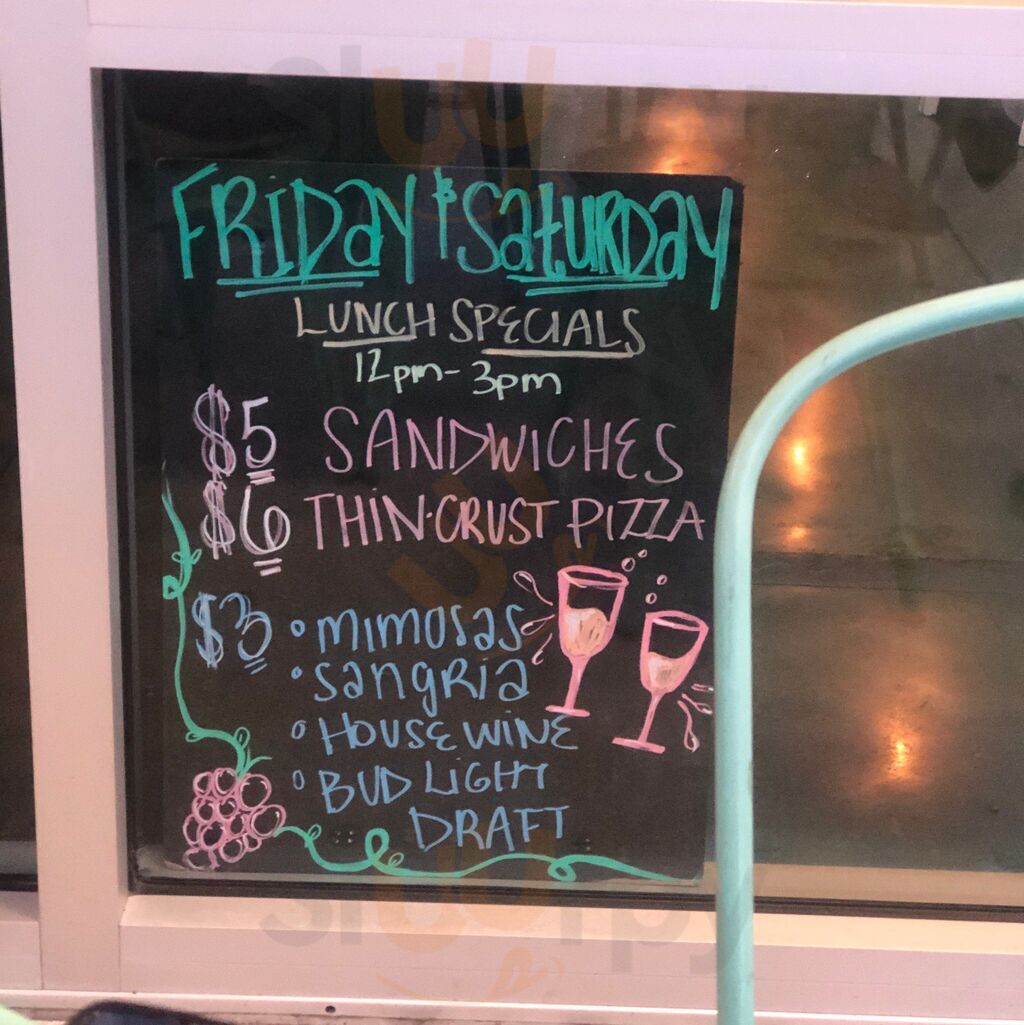 FRIDAY & SATURDAY
LUNCH SPECIALS
12pm - 3pm
$5 SANDWICHES
$6 THIN-CRUST PIZZA
$3 • mimosas
• sangria
• HOUSE WINE
• BUD LIGHT
DRAFT